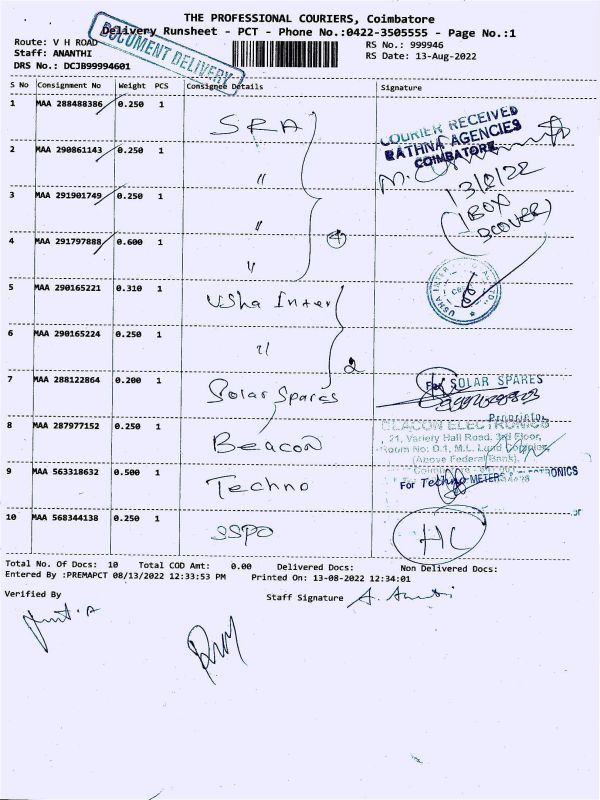 THE PROFESSIONAL COURIERS, Coimbatore
Delivery Runsheet - PCT - Phone No.:0422-3505555 - Page No.:1
Route: V H ROAD
RS No.: 999946
Staff: ANANTHI
RS Date: 13-Aug-2022
DRS No.: DCJB99994601
DOCUMENT DELIVERY
S No Consignment No Weight PCS Consignee Details Signature
1 MAA 288488386 0.250 1 SRA
COURIER RECEIVED
RATHNA AGENCIES
COIMBATORE
2 MAA 290861143 0.250 1 "
13/8/22
3 MAA 291901749 0.250 1 "
(1 BOX
3 COVER)
4 MAA 291797888 0.600 1 "
4
5 MAA 290165221 0.310 1 Usha Inter
6 MAA 290165224 0.250 1 "
2
7 MAA 288122864 0.200 1 Solar Spares
For SOLAR SPARES
Proprietor
8 MAA 287977152 0.250 1 Beacon
BEACON ELECTRONICS
21, Variety Hall Road, 3rd Floor,
Room No: D.1, M.L. Complex
(Above Federal Bank),
9 MAA 563318632 0.500 1 Techno
For Techno METERS
10 MAA 568344138 0.250 1 SSPO
HC
Total No. Of Docs: 10 Total COD Amt: 0.00 Delivered Docs: Non Delivered Docs:
Entered By :PREMAPCT 08/13/2022 12:33:53 PM Printed On: 13-08-2022 12:34:01
Verified By
Staff Signature A. Ananthi